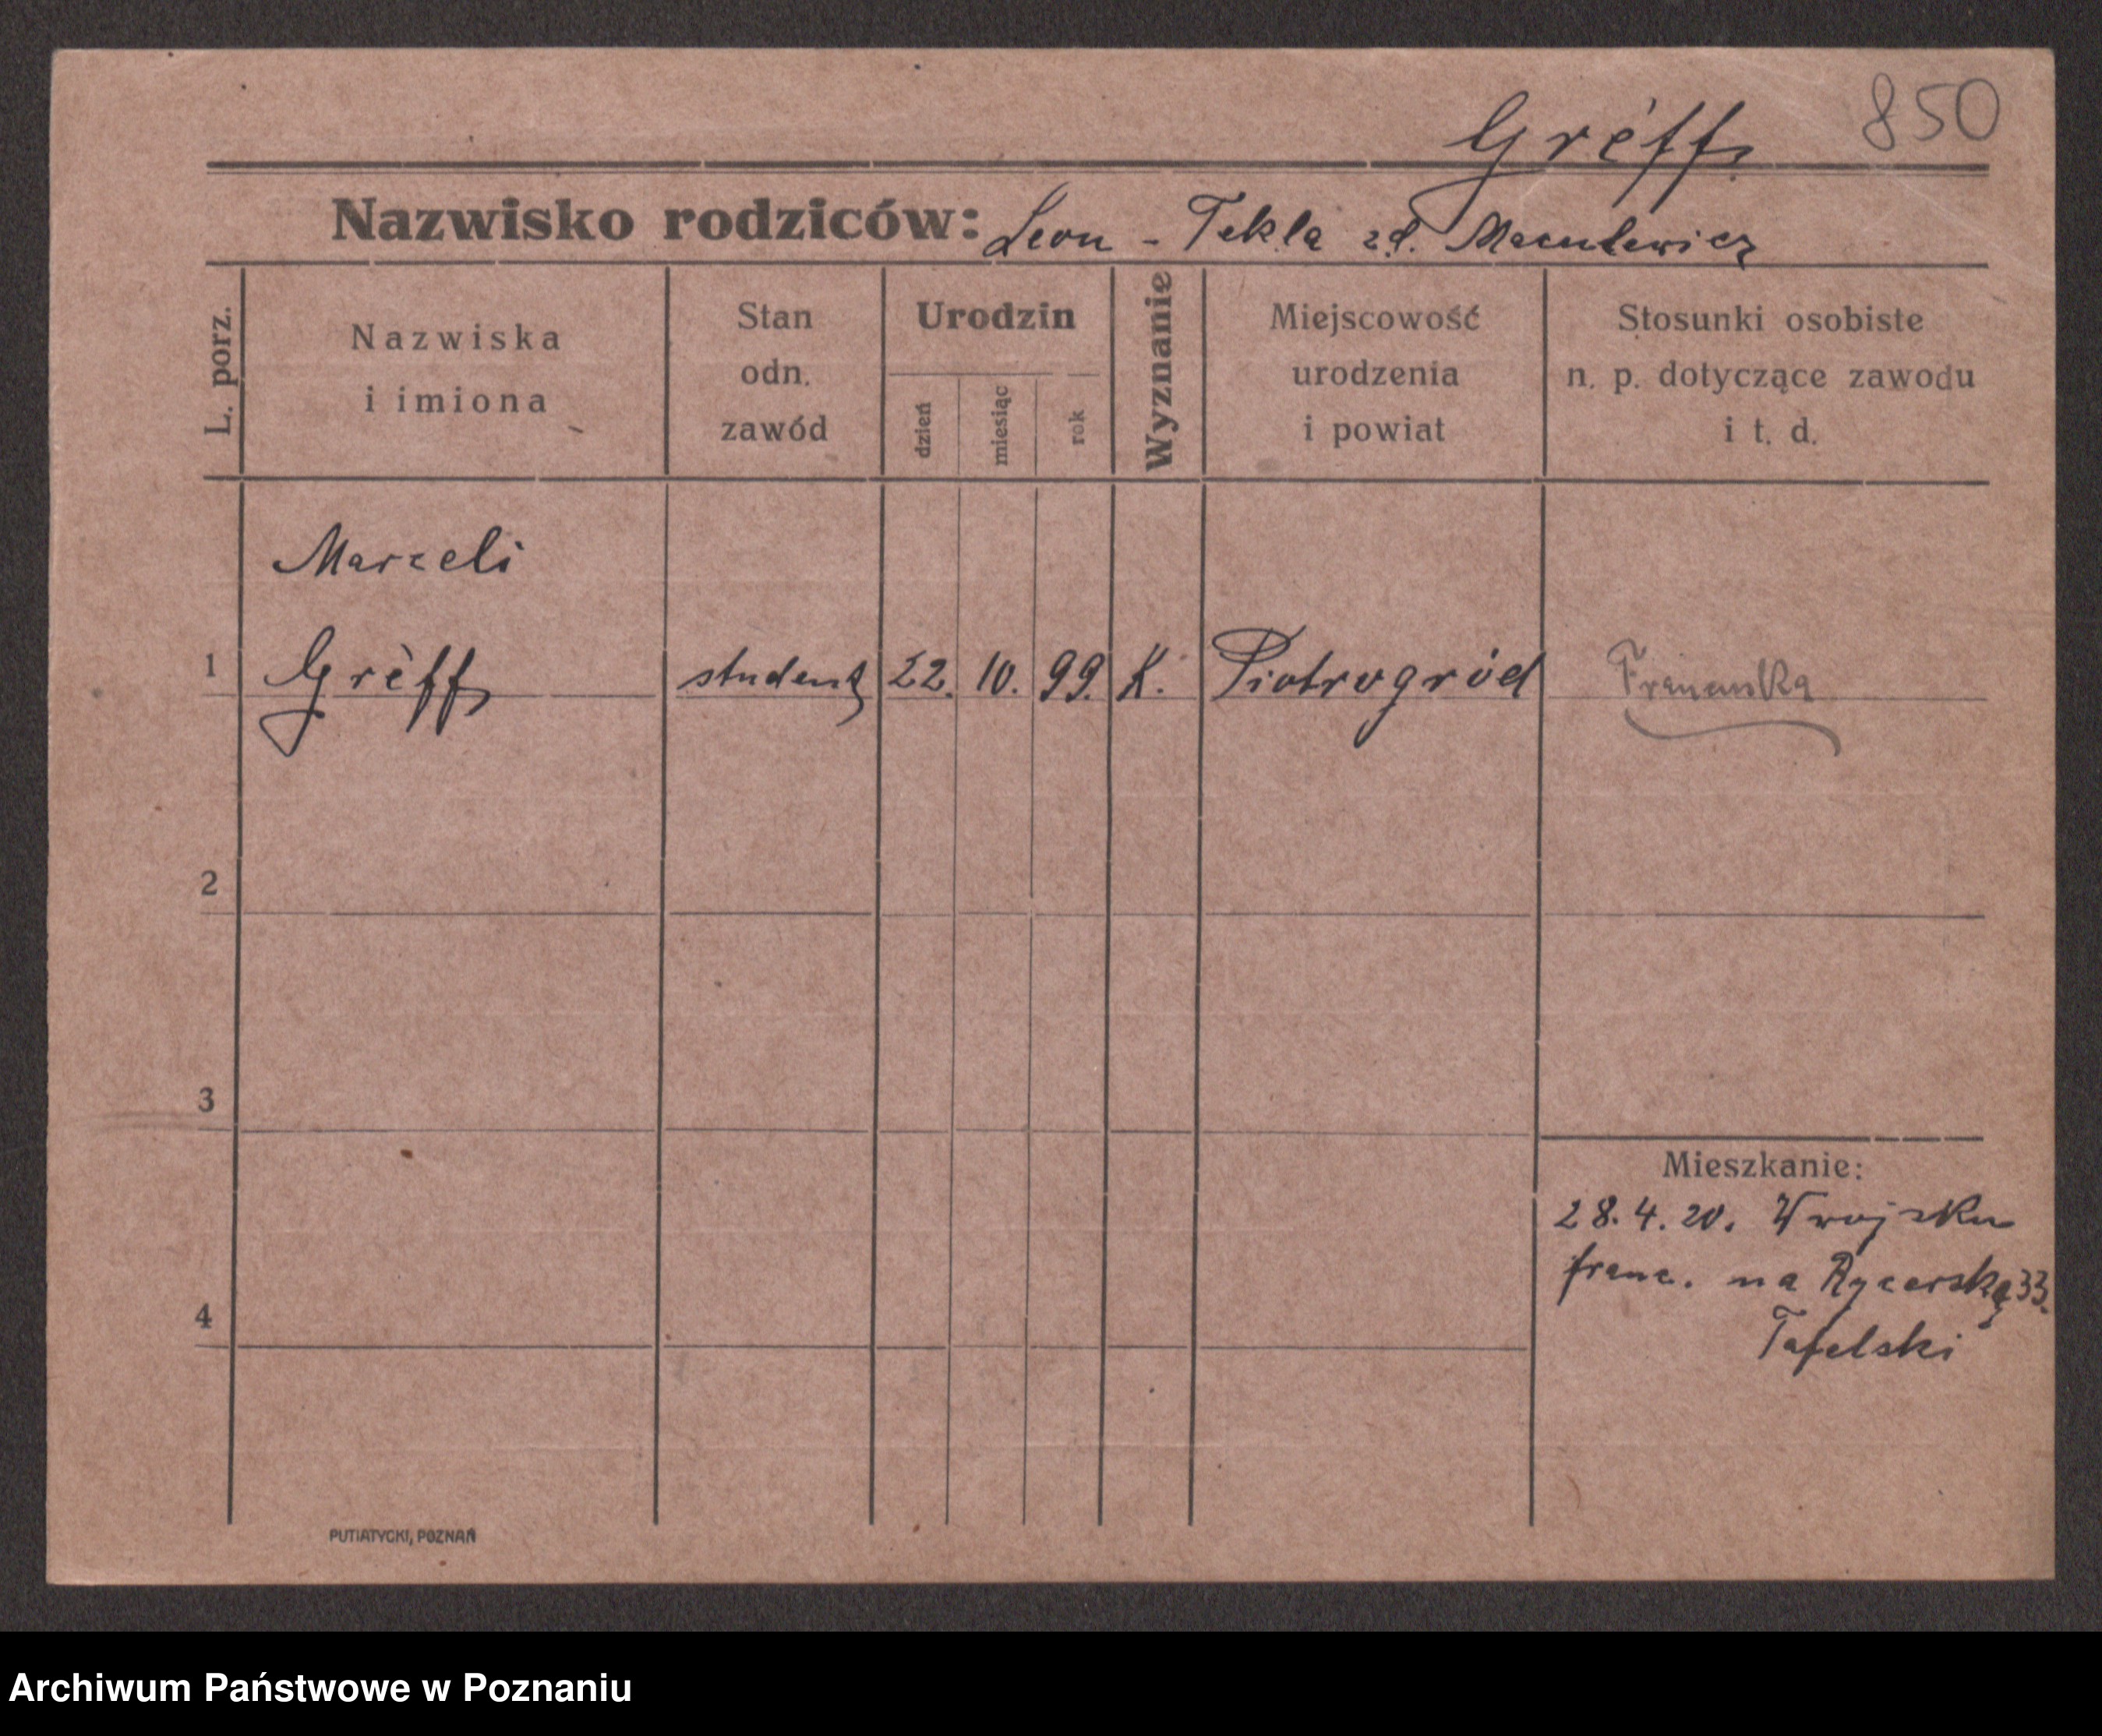 850
Grèff
Nazwisko rodziców: Leon - Tekla zd. Maculewicz
L. porz.
Nazwiska
i imiona
Stan
odn.
zawód
Urodzin
dzień
miesiąc
rok
Wyznanie
Miejscowość
urodzenia
i powiat
Stosunki osobiste
n. p. dotyczące zawodu
i t. d.
Marceli
1 Grèff student 22. 10. 99. K. Piotrogród
2
3
4
Mieszkanie:
28.4.20. Wrojsku
franc. na Rycerską 33.
Tafelski
PUTIATYCKI, POZNAŃ
Archiwum Państwowe w Poznaniu